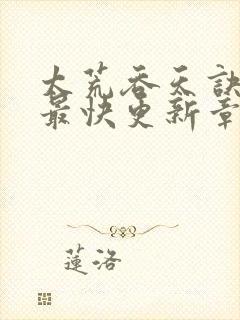 大荒吞天訣
最快更新章
蓮洛